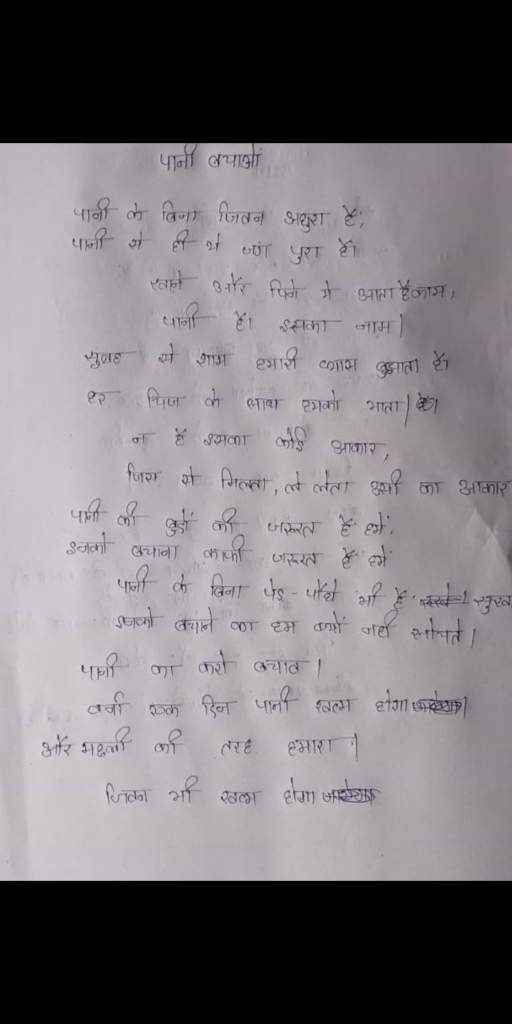 पानी बचाओ
पानी के बिना जिवन अधुरा हैं,
पानी से ही ये जग पुरा हैं।
खाने और पिने मे आता हैं काम,
पानी हैं। इसका नाम।
सुबह से शाम हमारी प्यास बुझाता हैं।
हर चिज के साथ हमको भाता।
न हैं इसका कोई आकार,
जिस से मिलता, ले लेता उसी का आकार
पानी की बुंदो की जरूरत हैं हमें,
इनको बचाना काफी जरूरत हैं हमें
पानी के बिना पेड़-पौधे भी हैं सुख
इनको बचाने का हम क्यों नहीं सोचते।
पानी का करो बचाव।
वर्ना एक दिन पानी खत्म होगा
और मछली की तरह हमारा।
जिवन भी खत्म होगा